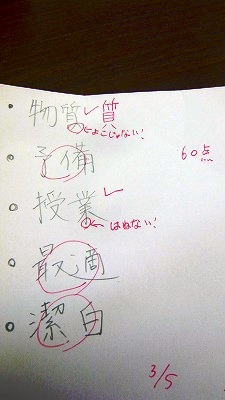 物質✓質
←よこじゃない!
予備
60点
授業✓
←はねない!
最適
潔白
3/5